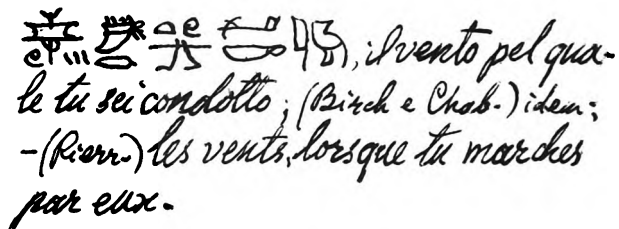 , il vento pel qua-
le tu sei condotto; (Birch e Chab.) idem;
-(Pierr.) les vents, lorsque tu marches
par eux.